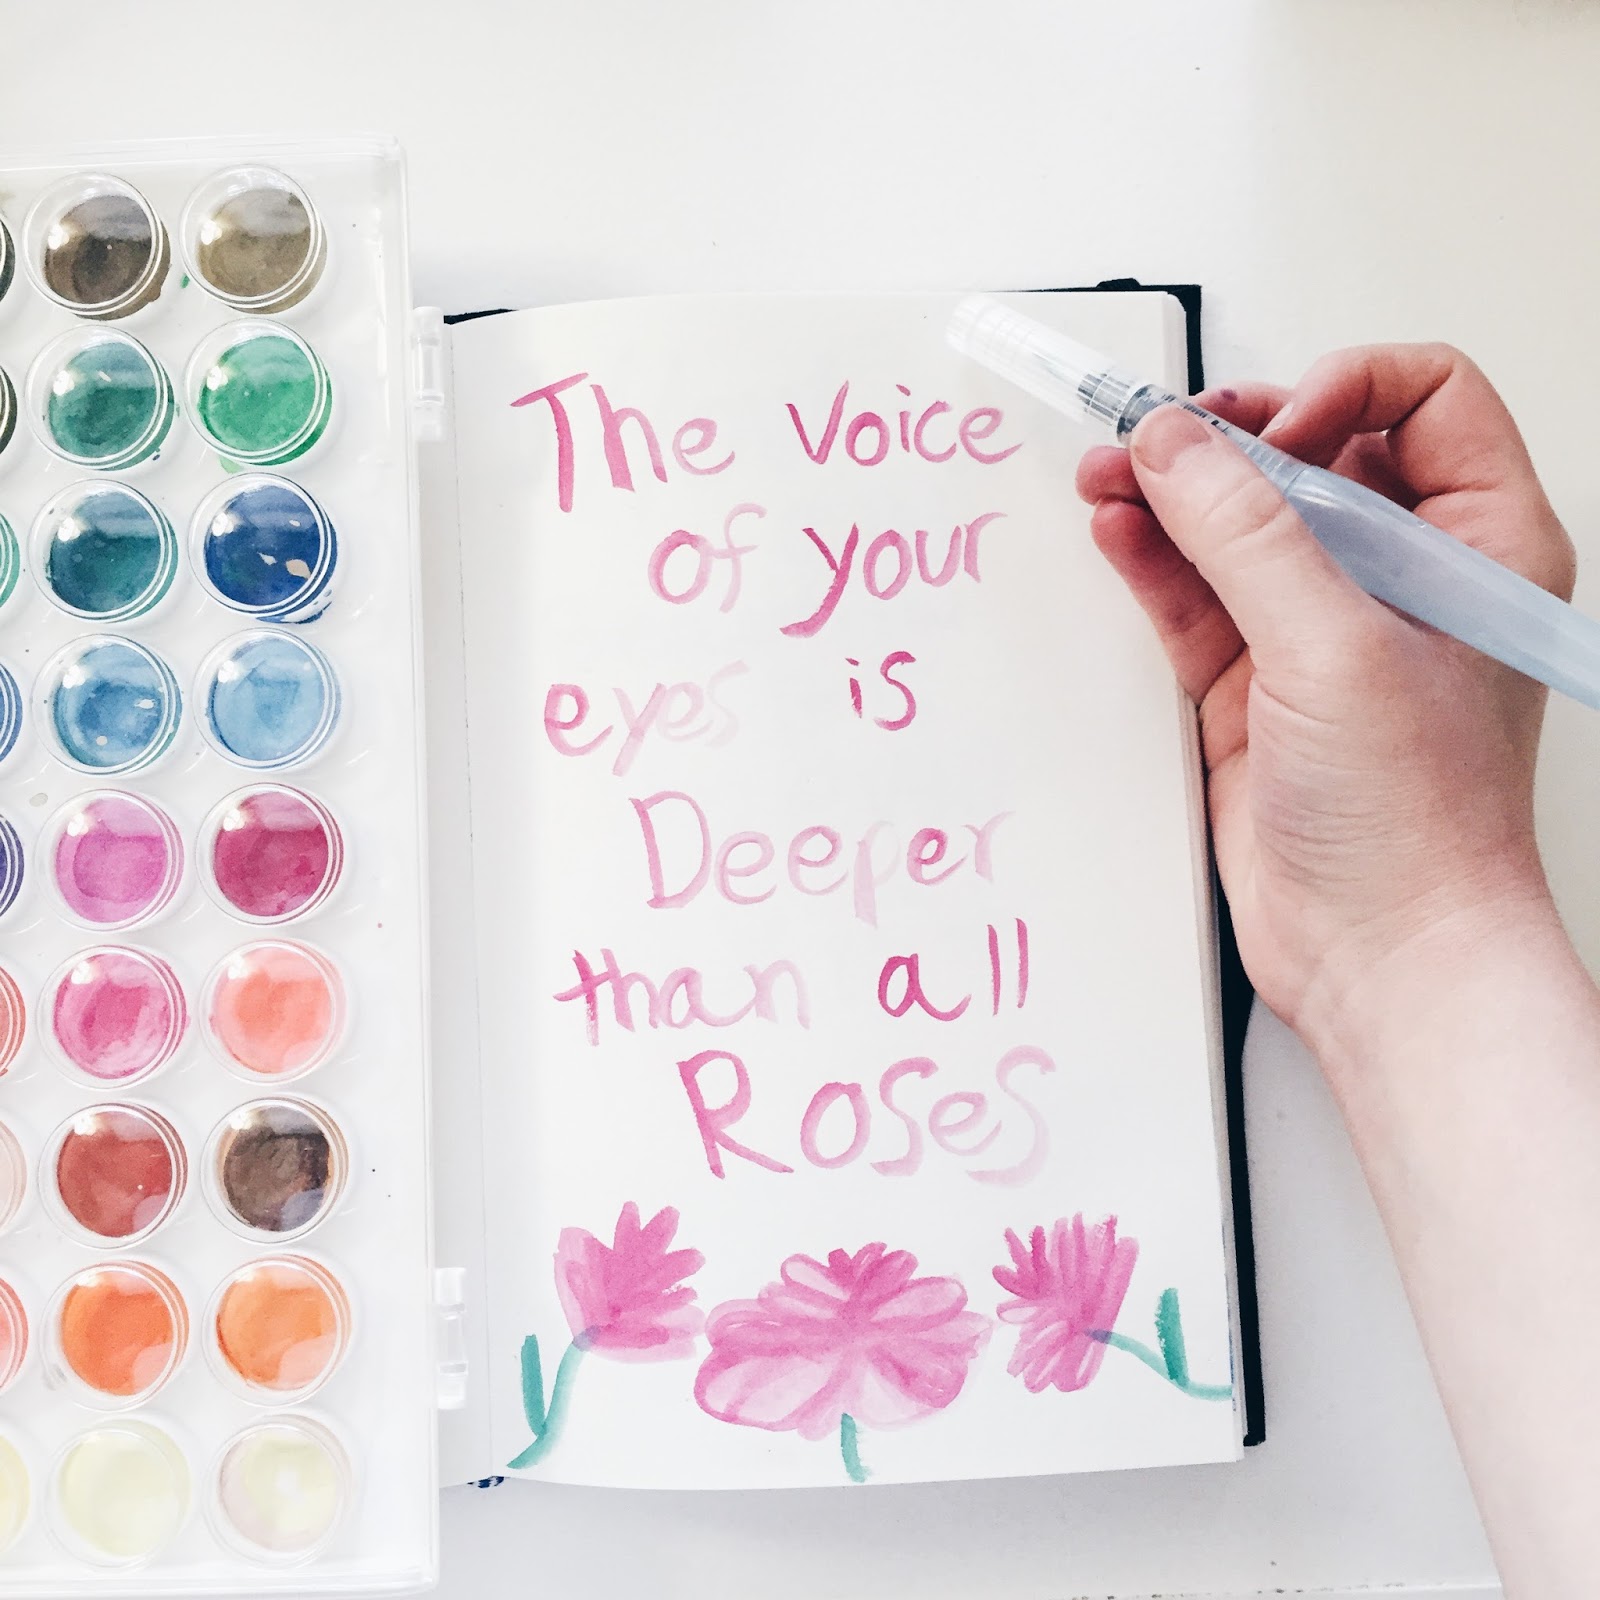 The voice
of your
eyes is
Deeper
than all
Roses